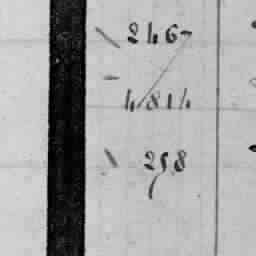 2467
4814
258